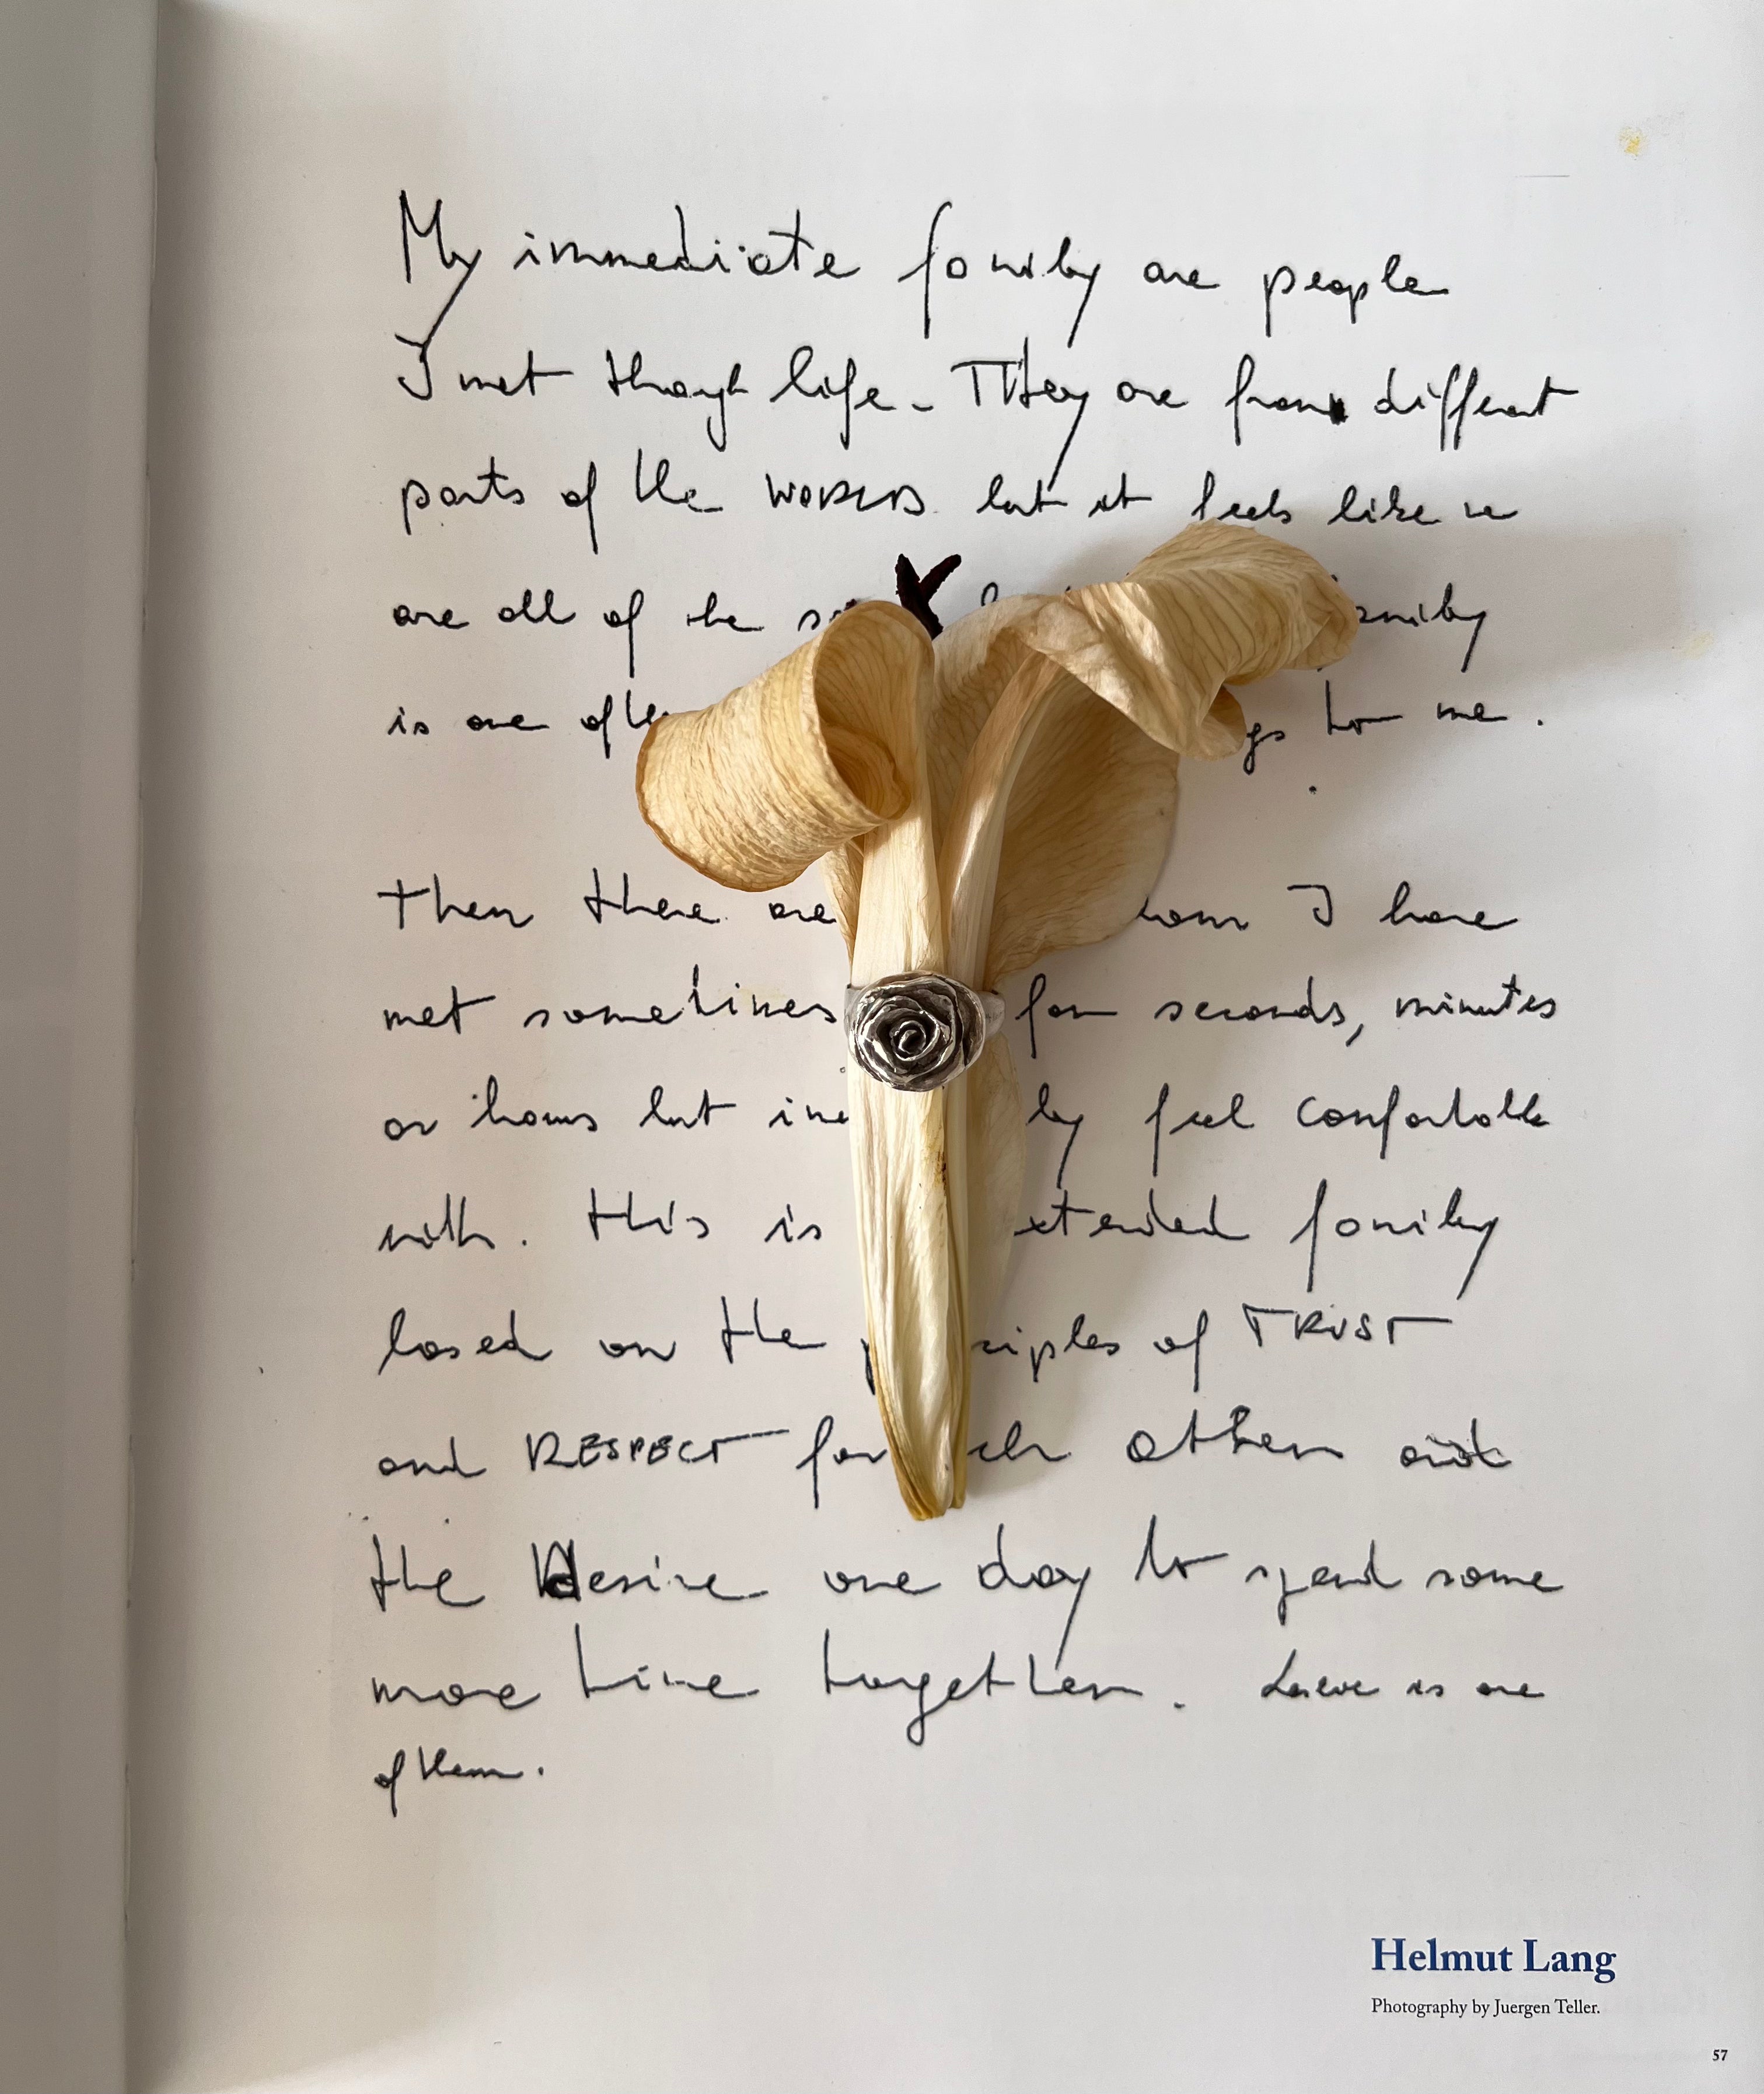 My immediate family are people
I met though life. They are from different
parts of the WORLD but it feels like we
are all of the family
is one of the to me.
Then there are I have
met sometimes for seconds, minutes
or hours but feel comfortable
with. This is family
based on the of TRUST
and RESPECT for other and
the desire one day to spend some
more time together. is one
of them.
Helmut Lang
Photography by Juergen Teller.
57